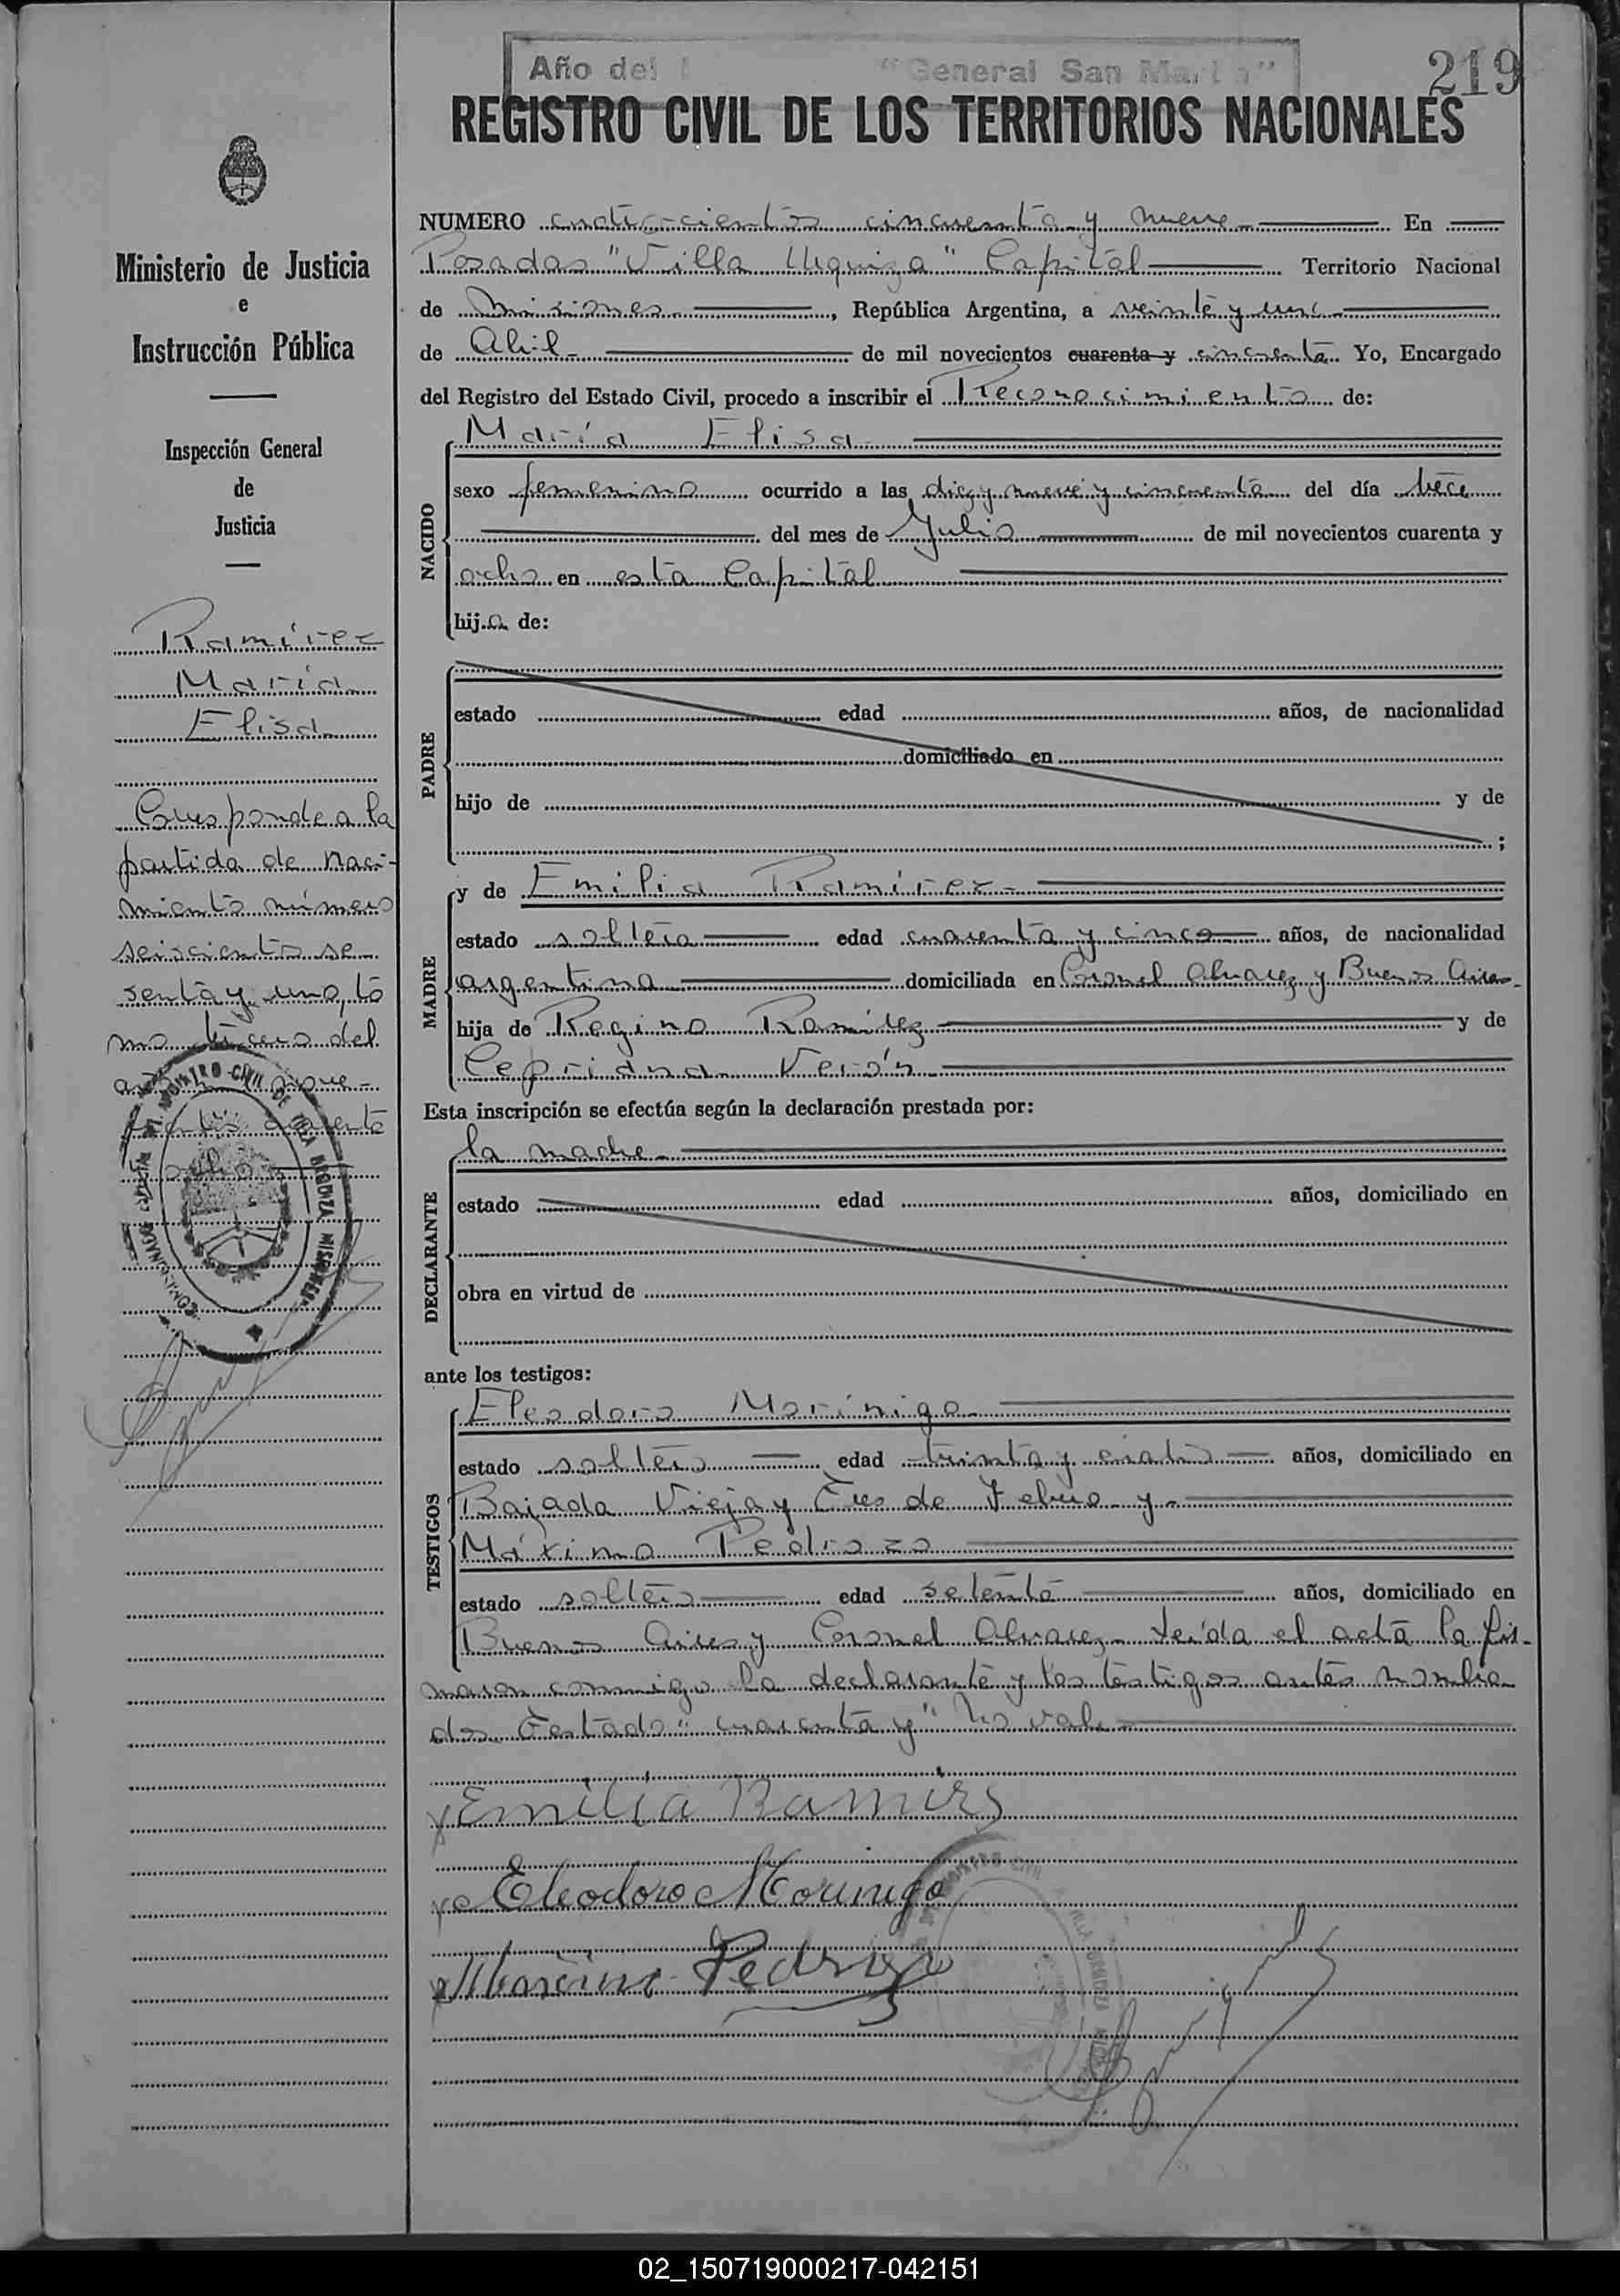 Año del "General San Martín"
219
REGISTRO CIVIL DE LOS TERRITORIOS NACIONALES
Ministerio de Justicia
e
Instrucción Pública
Inspección General
de
Justicia
Ramírez
María
Elisa
Corresponde a la
partida de naci-
miento número
seiscientos se
senta y uno, to
mo tercero del
año mil nove-
cientos cuarenta
y ocho
NUMERO cuatrocientos cincuenta y nueve En
Posadas "Villa Urquiza" Capital Territorio Nacional
de Misiones, República Argentina, a veinte y uno
de Abril de mil novecientos cuarenta y cincuenta Yo, Encargado
del Registro del Estado Civil, procedo a inscribir el Reconocimiento de:
NACIDO
María Elisa
sexo femenino ocurrido a las diez y nueve y cincuenta del día trece
del mes de Julio de mil novecientos cuarenta y
ocho en esta Capital
hija de:
PADRE
estado edad años, de nacionalidad
domiciliado en
hijo de y de
;
MADRE
y de Emilia Ramírez
estado soltera edad cuarenta y cinco años, de nacionalidad
argentina domiciliada en Coronel Alvarez y Buenos Aires
hija de Regino Ramírez y de
Cepriana Verón
Esta inscripción se efectúa según la declaración prestada por:
DECLARANTE
la madre
estado edad años, domiciliado en
obra en virtud de
ante los testigos:
TESTIGOS
Eleodoro Morínigo
estado soltero edad treinta y cuatro años, domiciliado en
Bajada Vieja y Tres de Febrero y
Máximo Pedrozo
estado soltero edad setenta años, domiciliado en
Buenos Aires y Coronel Alvarez. Leída el acta la fir-
maron conmigo la declarante y los testigos antes nombra
dos. Testado: "cuarenta y" No vale
Emilia Ramirez
Eleodoro Morinigo
Maximo Pedrozo
02_150719000217-042151